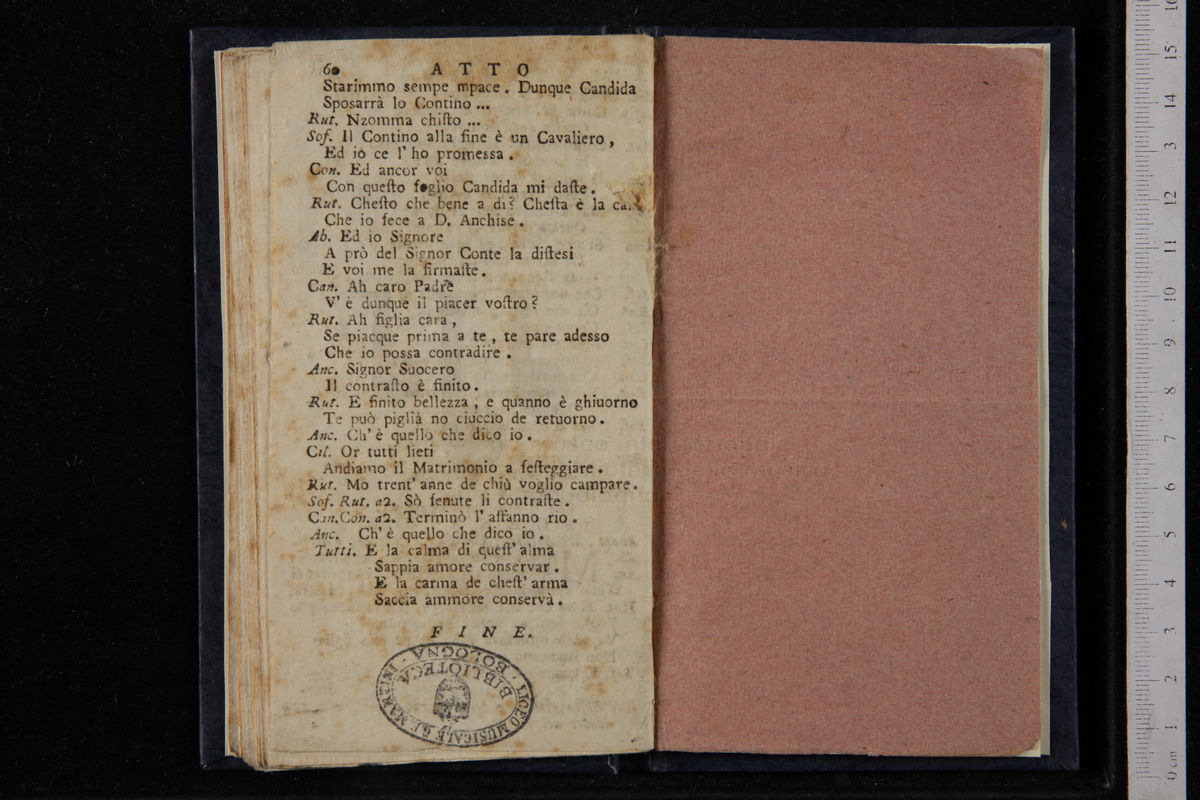 60 ATTO
Starimmo sempe mpace. Dunque Candida
Sposarrà lo Contino ...
Rut. Nzomma chiſto ...
Sof. Il Contino alla fine è un Cavaliero,
Ed iò ce l' ho promessa.
Con. Ed ancor voi
Con queſto foglio Candida mi daſte.
Rut. Cheſto che bene a dì? Cheſta è la
Che io fece a D. Anchise.
Ab. Ed io Signore
A prò del Signor Conte la diſtesi
E voi me la firmaſte.
Can. Ah caro Padre
V' è dunque il piacer voſtro?
Rut. Ah figlia cara,
Se piacque prima a te, te pare adesso
Che io possa contradire.
Anc. Signor Suocero
Il contraſto è finito.
Rut. E finito bellezza, e quanno è ghiuorno
Te può piglià no ciuccio de retuorno.
Anc. Ch' è quello che dico io.
Cil. Or tutti lieti
Andiamo il Matrimonio a feſteggiare.
Rut. Mo trent' anne de chiù voglio campare.
Sof. Rut. a2. Sò fenute li contraſte.
Can. Con. a2. Terminò l' affanno rio.
Anc. Ch' è quello che dico io.
Tutti. E la calma di queſt' alma
Sappia amore conservar.
E la carma de cheſt' arma
Saccia ammore conservà.
FINE.
LICEO MUSICALE G.B. MARTINI · BOLOGNA ·
BIBLIOTECA
0 cm 1 2 3 4 5 6 7 8 9 10 11 12 3 14 15 16